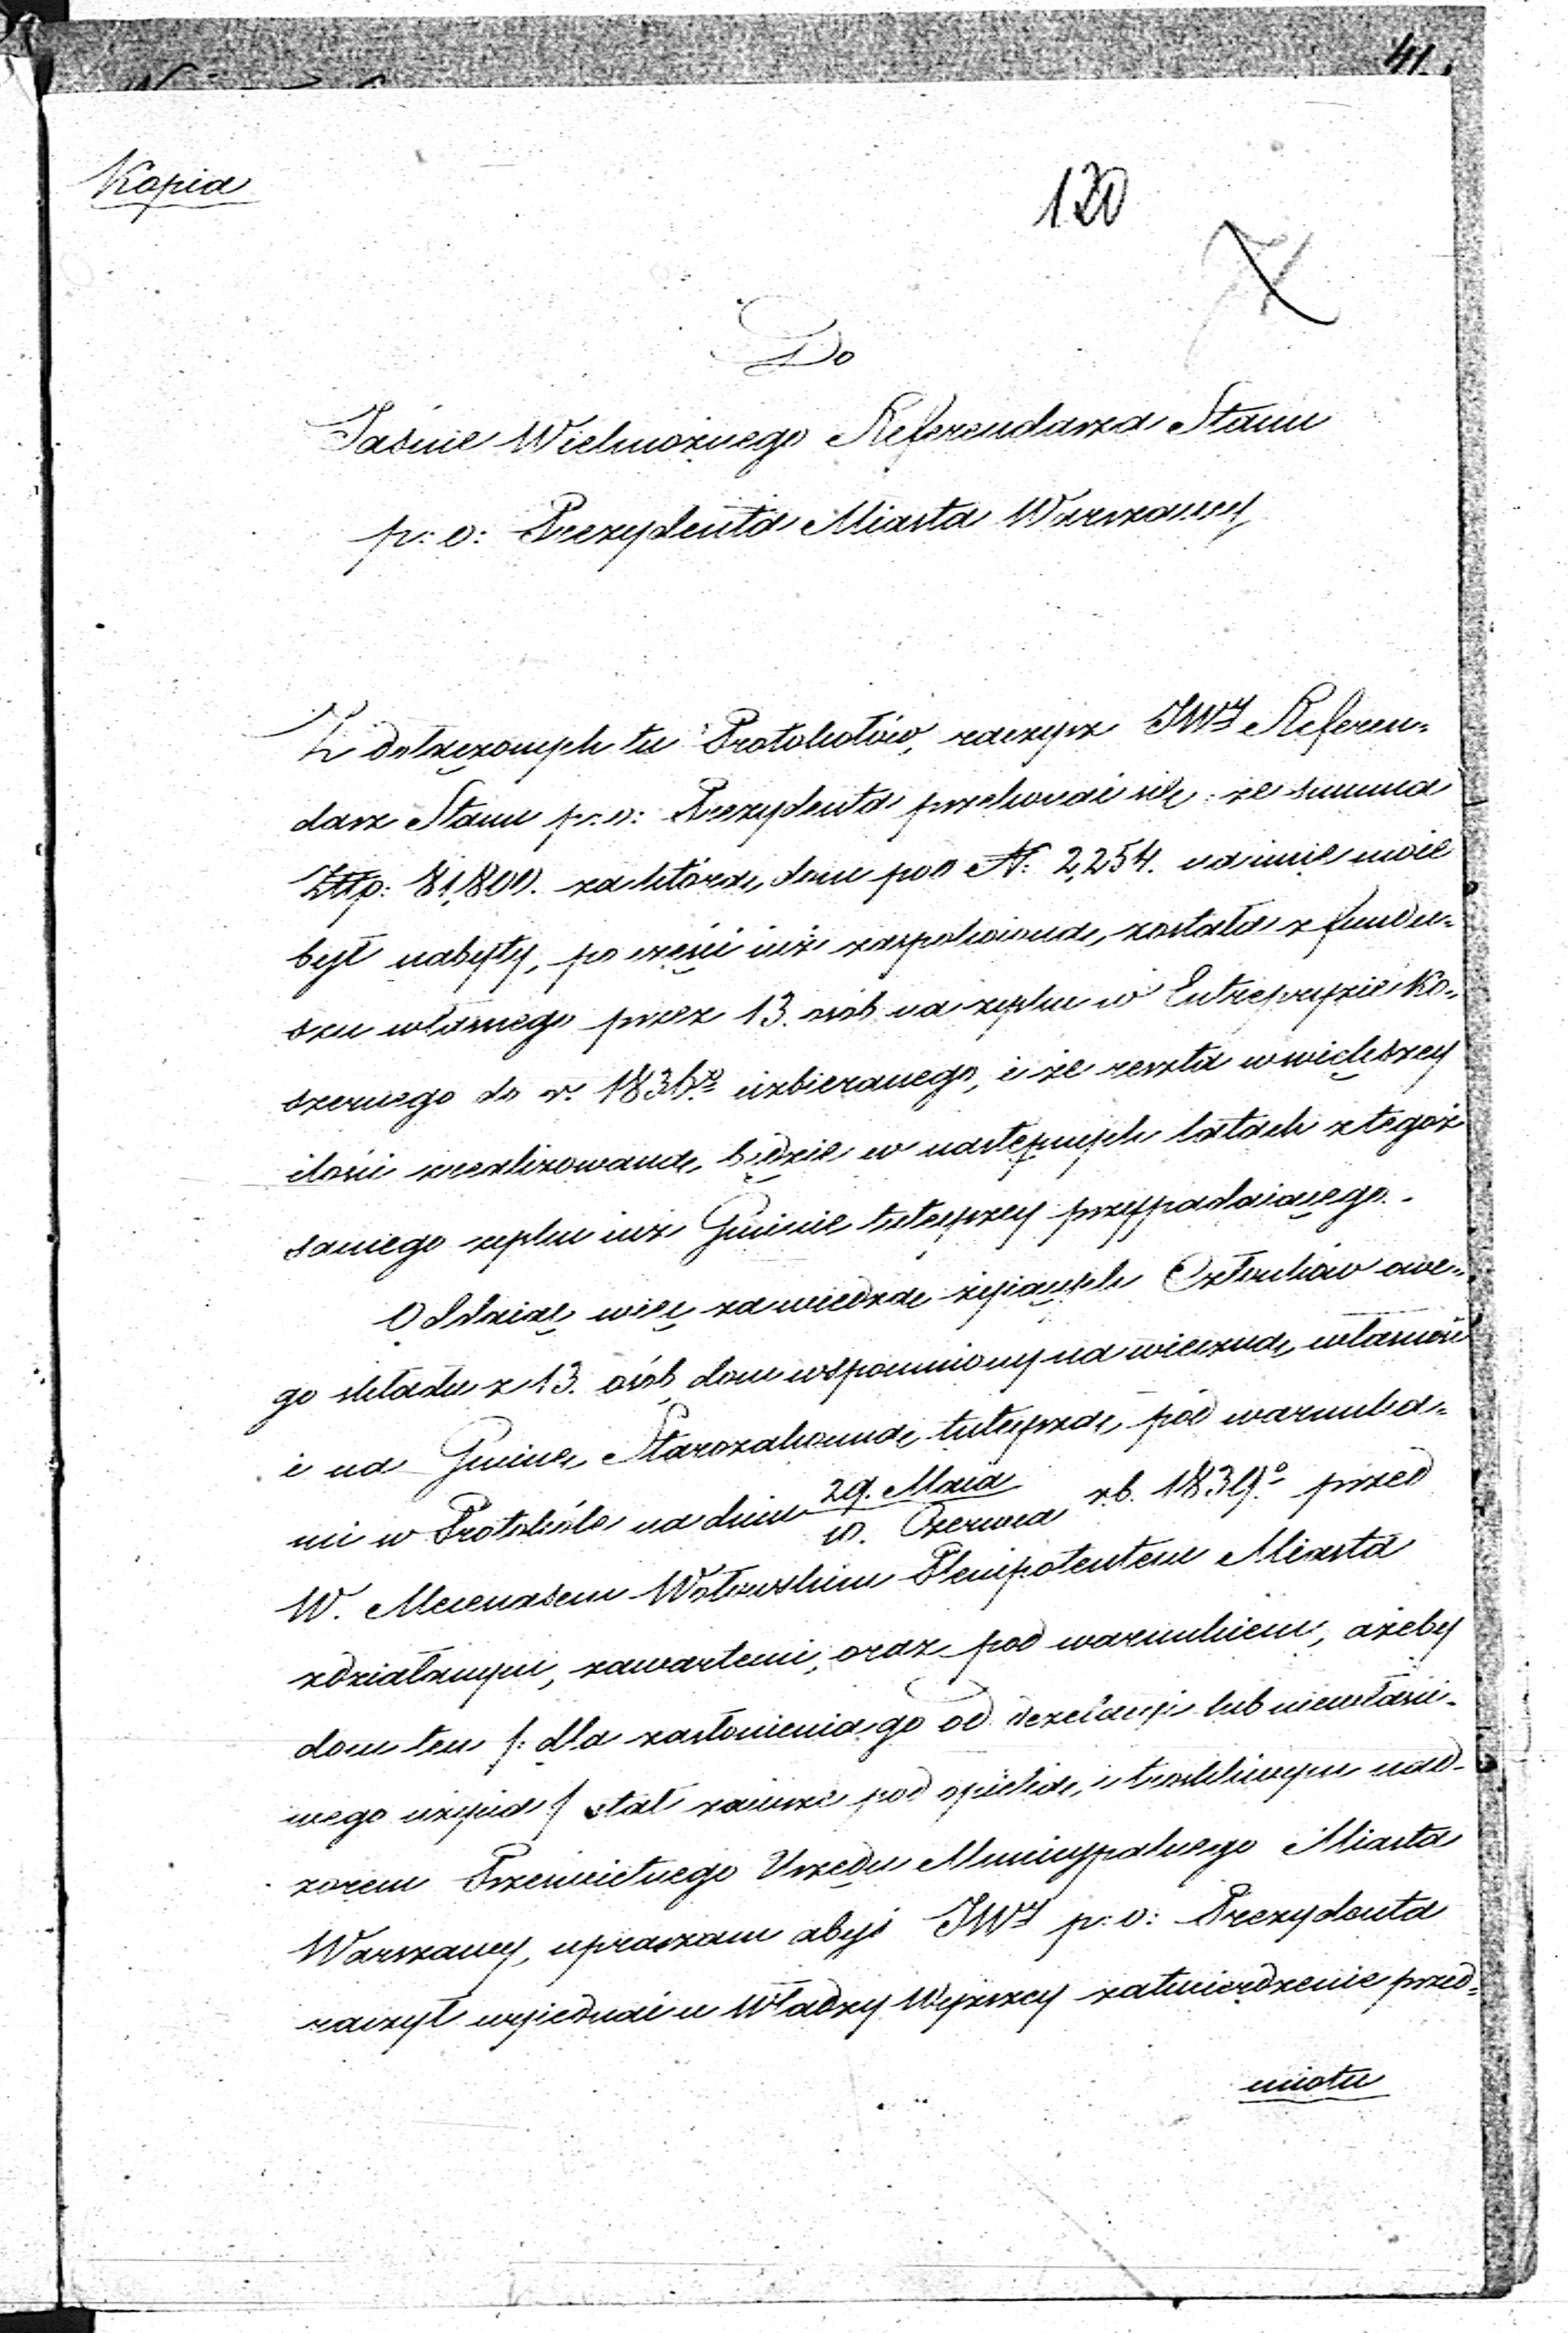 41.
Kopia
120
Do
Jaśnie Wielmożnego Referendarza Stanu
p: o: Prezydenta Miasta Warszawy
Z dołączonych tu Protokołów, raczysz JWJ Referen„
darz Stanu p: o: Prezydenta przekonać się: że summa
Złtp: 81,800. za którą dom pod N: 2,254. na imię moie
był nabyty, po części iuż zaspokoiona, została z fundu„
szu własnego przez 13. osób na zysku w Entrepryzie Ko„
szernego do r. 1836.º uzbieranego, i że reszta w większey
ilości zrealizowaną będzie w następnych latach z tegoż
samego zysku iuż Gminie tuteyszey przypadaiącego.
Oddaiąc więc za wiedzą żyiących Członków owe„
go składu z 13. osób, dom wspomniony na wieczną własność
i na Gminę Starozakonną tuteyszą, pod warunka„
mi w Protokóle na dniu 29. Maia / 10. Czerwca r.b. 1839.º przed
W. Mecenasem Wołowskim Plenipotentem Miasta
zdziałanym, zawartemi, oraz pod warunkiem, ażeby
dom ten /: dla zasłonienia go od dezelacyi lub niewłaści„
wego użycia :/ stał zawsze pod opieką i troskliwym nad„
zorem Prześwietnego Urzędu Municypalnego Miasta
Warszawy, upraszam abyś JWJ p: o: Prezydenta
raczył wyiednać u Władzy Wyższey zatwierdzenie przed„
miotu